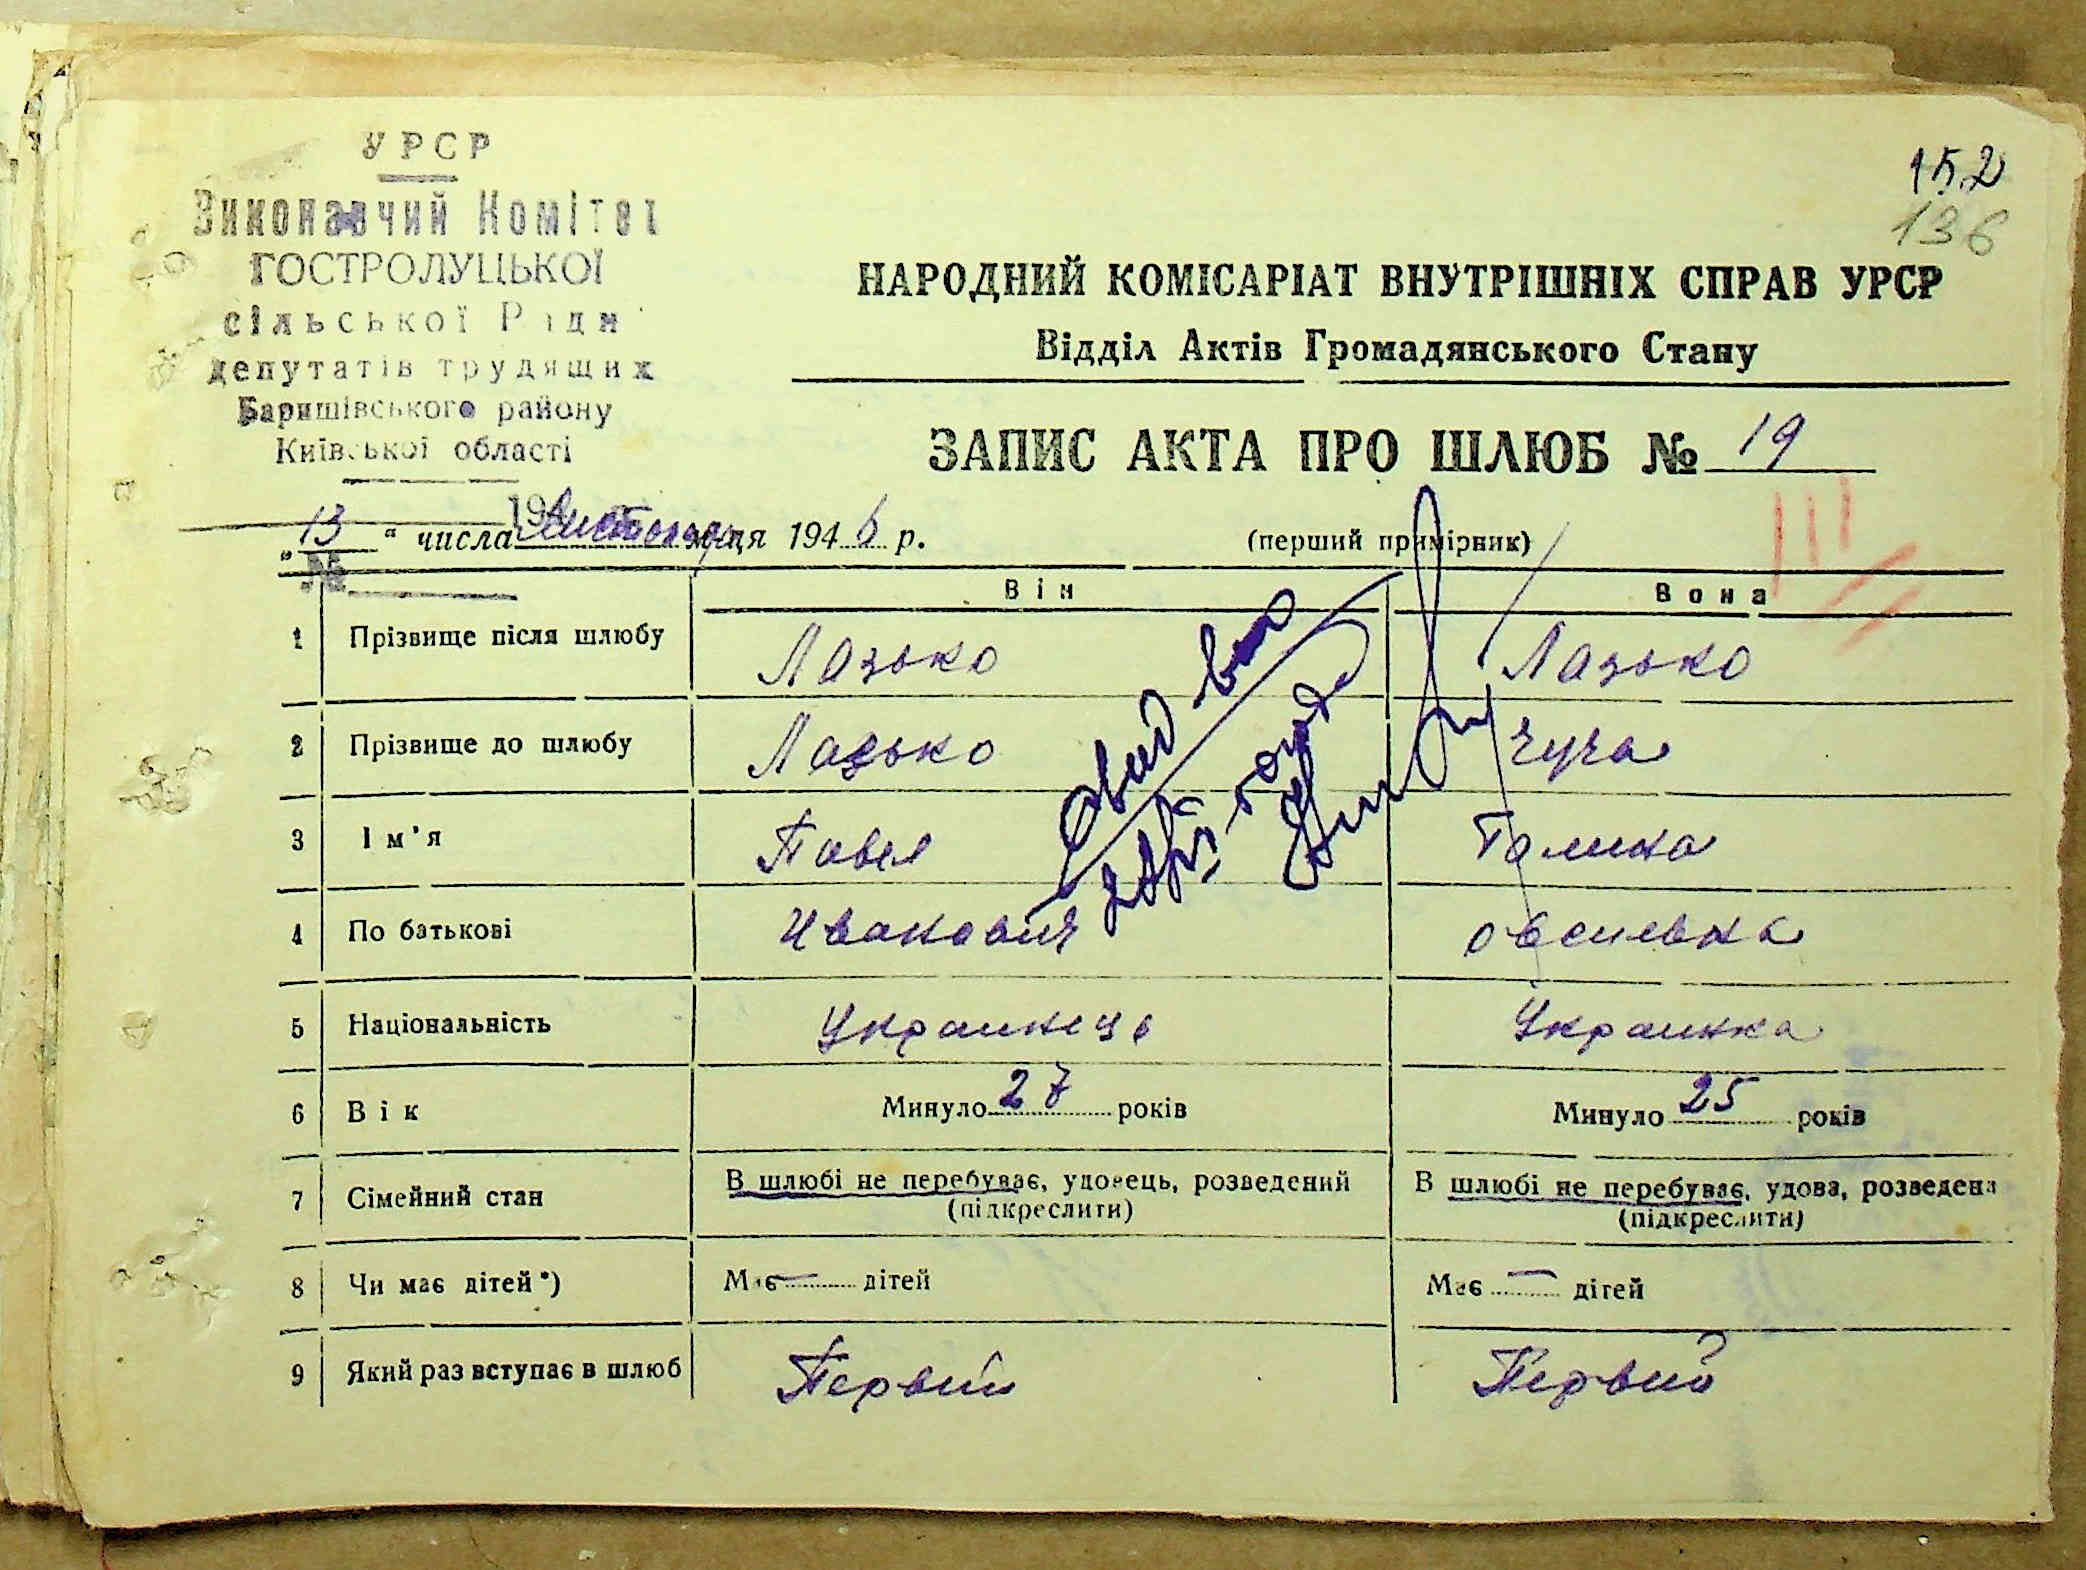 УРСР
Виконавчий Комітет
ГОСТРОЛУЦЬКОЇ
сільської Ради
депутатів трудящих
Баришівського району
Київської області
194
№
152
136
НАРОДНИЙ КОМІСАРІАТ ВНУТРІШНІХ СПРАВ УРСР
Відділ Актів Громадянського Стану
ЗАПИС АКТА ПРО ШЛЮБ № 19
„13“ числа Листопада місяця 1946 р.
(перший примірник)
Він Вона
1 Прізвище після шлюбу Лазько Лазько
2 Прізвище до шлюбу Лазько Чуча
3 Ім'я Павел Галина
4 По батькові Иванович Овсиевна
5 Національність Украинець Украинка
6 Вік Минуло 27 років Минуло 25 років
7 Сімейний стан В шлюбі не перебуває, удовець, розведений (підкреслити) В шлюбі не перебуває, удова, розведена (підкреслити)
8 Чи має дітей*) Має — дітей Має — дітей
9 Який раз вступає в шлюб Первий Первий